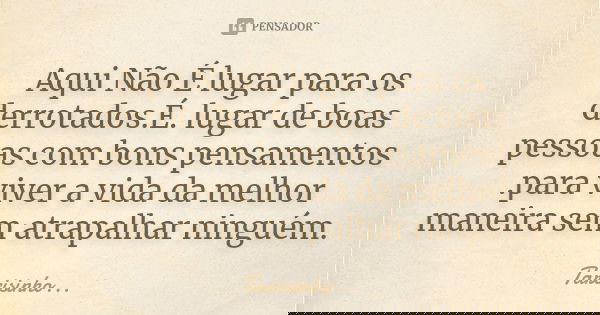 PENSADOR
Aqui Não É lugar para os
derrotados.É. lugar de boas
pessoas com bons pensamentos
para viver a vida da melhor
maneira sem atrapalhar ninguém.
Tarcisinho...